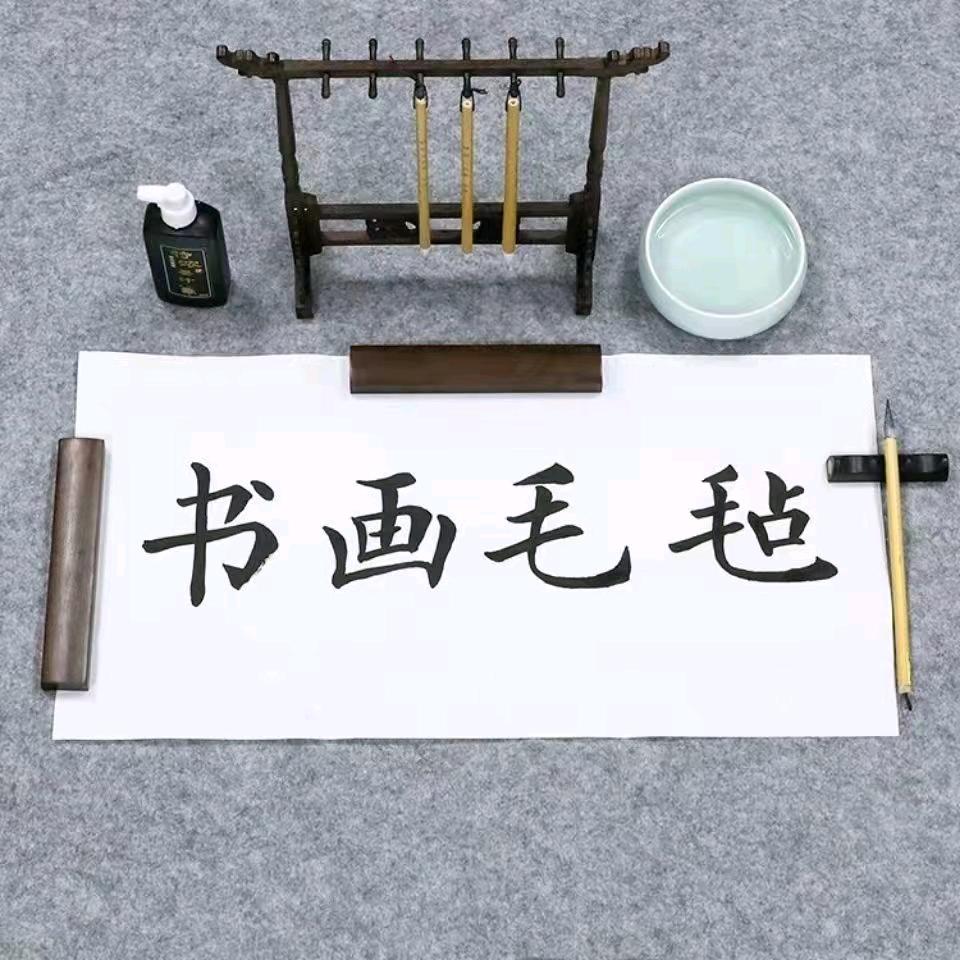 书画毛毡